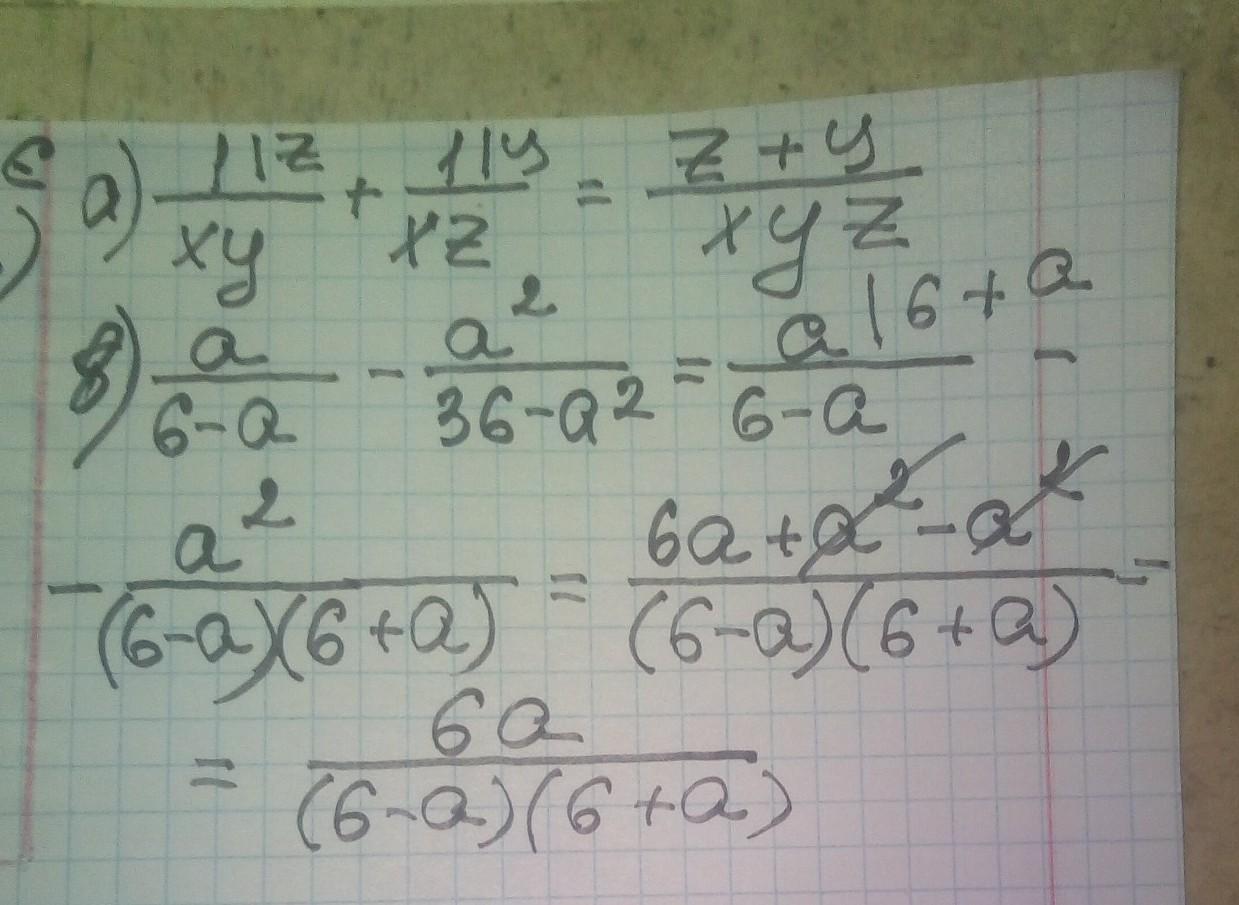 а) 1|z/xy + 1|y/xz = z+y/xyz
в) a/6-a - a²/36-a² = a|6+a/6-a -
- a²/(6-a)(6+a) = 6a+a²-a²/(6-a)(6+a) =
= 6a/(6-a)(6+a)